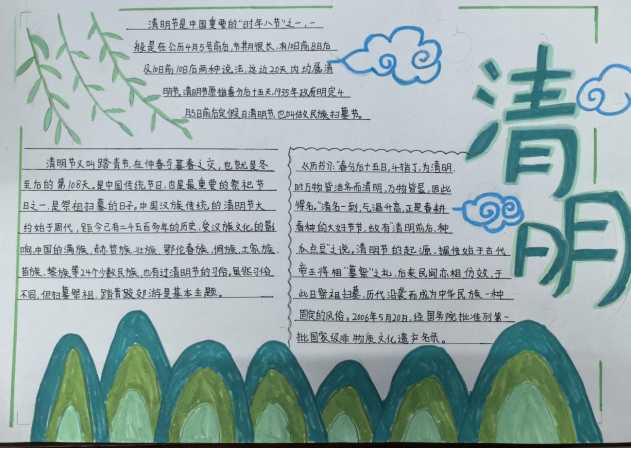 清明节是中国重要的“时年八节”之一,一
般是在公历4月5号前后,节期很长,有10日前8日后
及10日前10日后两种说法,这近20天内均属清
明节。清明节原指春分后十五天,1935年政府明定4
月5日前后定假日清明节,也叫做民族扫墓节。
清明
清明节又叫踏青节,在仲春与暮春之交,也就是冬
至后的第108天。是中国传统节日,也是最重要的祭祀节
日之一,是祭祖扫墓的日子。中国汉族传统的清明节大
约始于周代,距今已有二千五百多年的历史,受汉族文化的影
响,中国的满族、赫哲族、壮族、鄂伦春族、侗族、土家族、
苗族、黎族等24个少数民族,也有过清明节的习俗,虽然习俗
不同,但扫墓祭祖、踏青郊游是基本主题。
《历书》:“春分后十五日,斗指丁,为清明,
时万物皆洁齐而清明,万物皆显,因此
得名。”清明一到,气温升高,正是春耕
春种的大好时节,故有“清明前后,种
瓜点豆”之说。清明节的起源,据传始于古代
帝王将相“墓祭”之礼,后来民间亦相仿效,于
此日祭祖扫墓,历代沿袭而成为中华民族一种
固定的风俗。2006年5月20日,经国务院批准列第一
批国家级非物质文化遗产名录。